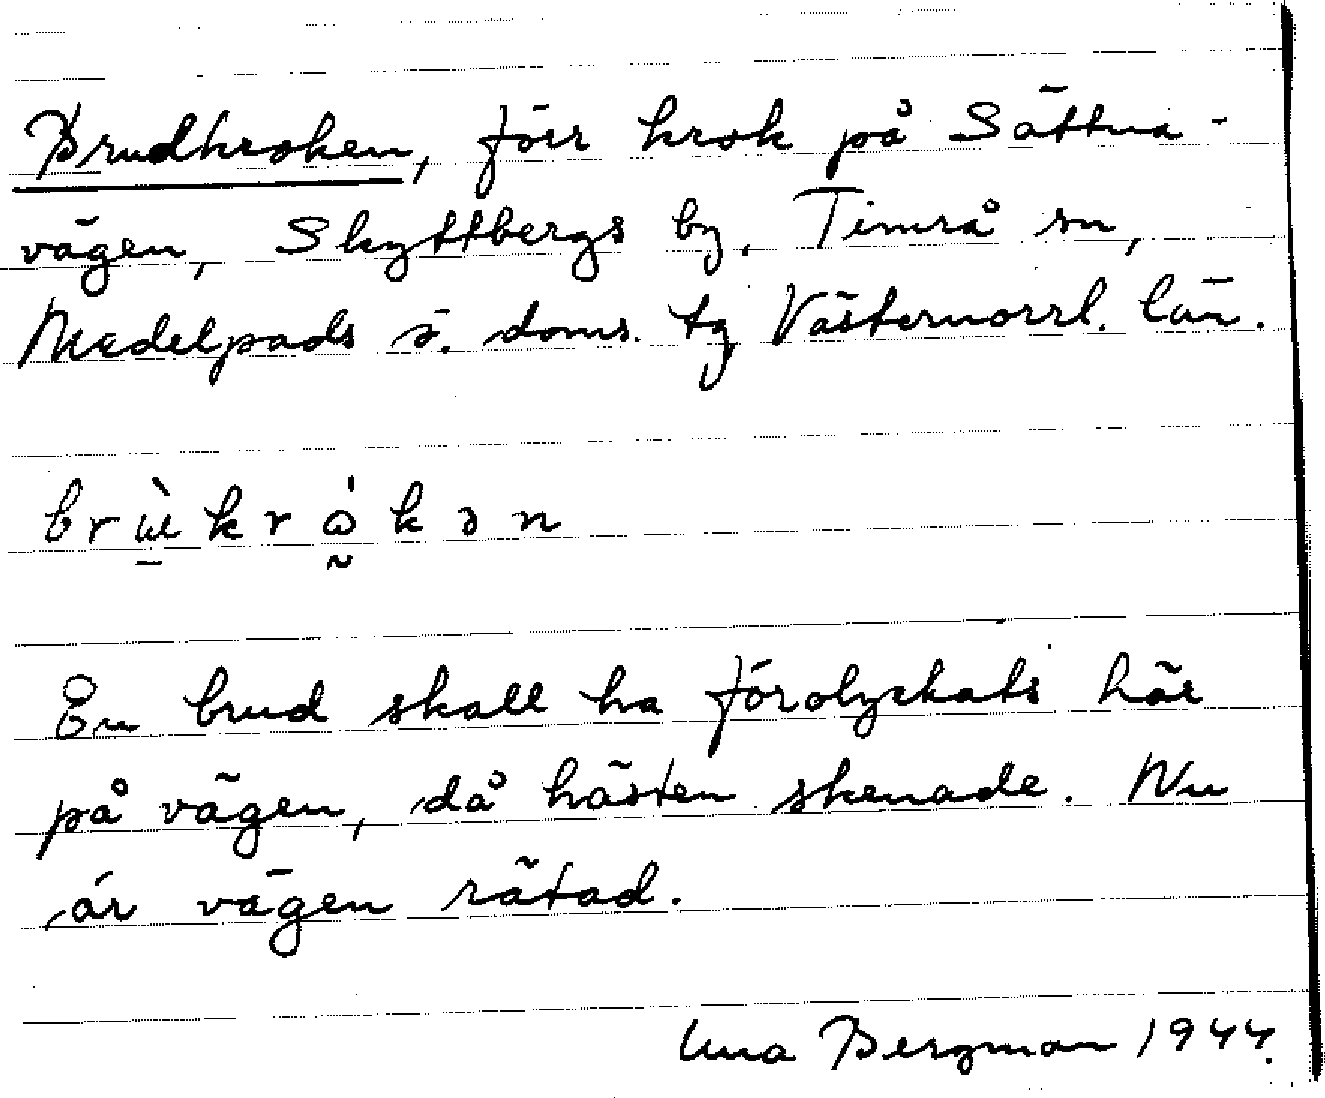 Brudkroken, förr krok på Sättna-
vägen, Skyttbergs by, Timrå sn,
Medelpads ö. doms. tg Västernorrl. län.
brɯ̱̀krɷ̰́kən
En brud skall ha förolyckats här
på vägen, då hästen skenade. Nu
är vägen rätad.
Una Bergman 1944.